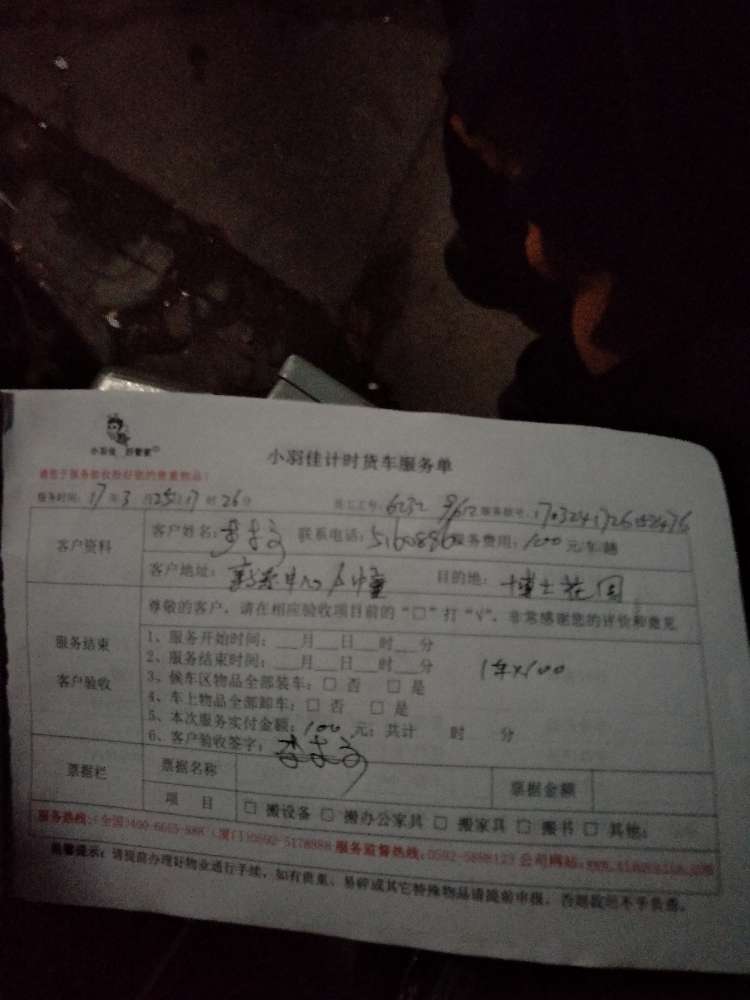 小羽佳 好管家
小羽佳计时货车服务单
服务时间：17年3月25日17时26分 员工工号：6232 服务账号：
客户资料
客户姓名： 联系电话： 服务费用：100元/车/趟
客户地址： 目的地：博士花园
服务结束
客户验收
尊敬的客户，请在相应验收项目前的“□”打“√”，非常感谢您的评价和意见
1、服务开始时间：___月___日___时___分
2、服务结束时间：___月___日___时___分
1车×100
3、候车区物品全部装车：□ 否 □ 是
4、车上物品全部卸车：□ 否 □ 是
5、本次服务实付金额：100元；共计 时 分
6、客户验收签字：
票据栏
票据名称 票据金额
项 目 □ 搬设备 □ 搬办公家具 □ 搬家具 □ 搬书 □ 其他：
服务热线：(全国)400-6665-888 (厦门)0592-5178988 服务监督热线：0592-5888123 公司网站：
温馨提示：请提前办理好物业通行手续，如有贵重、易碎或其它特殊物品请提前申报，否则我司不予负责。